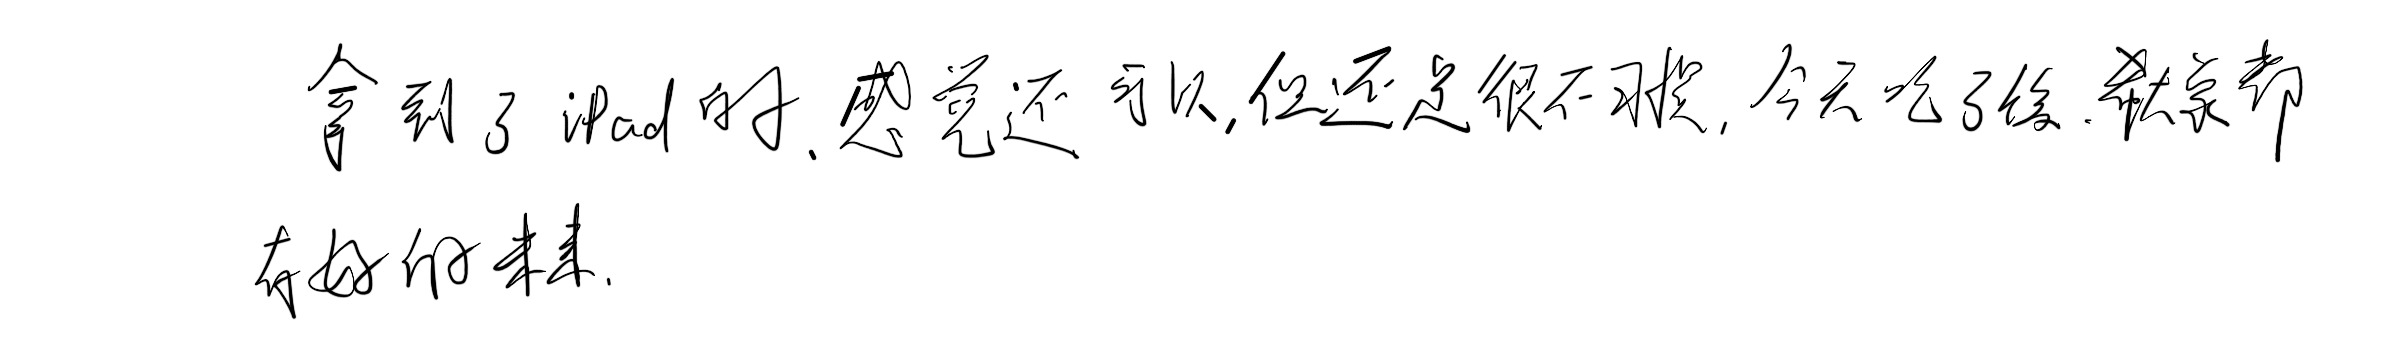 拿到了iPad的、感觉还可以,但还是很不习惯,今天吃了饭.大家都
有好的未来.